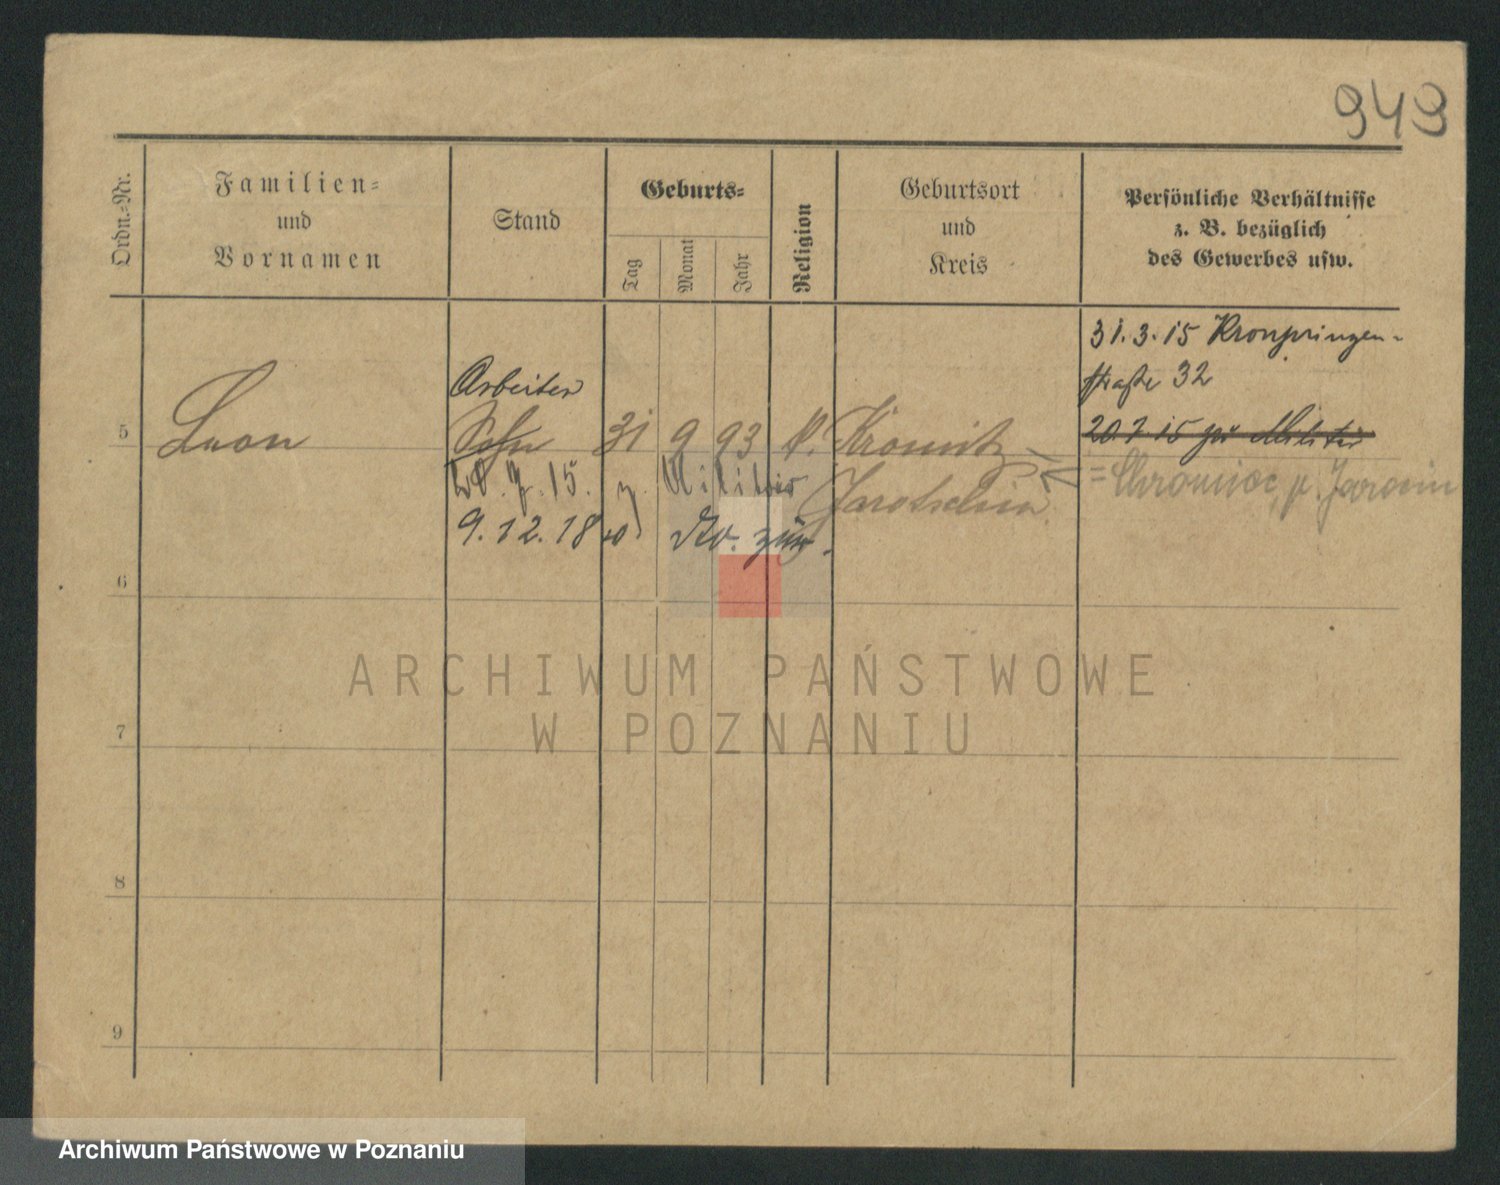 949
Ordn.-Nr.
Familien-
und
Vornamen
Stand
Geburts-
Tag
Monat
Jahr
Religion
Geburtsort
und
Kreis
Persönliche Verhältnisse
z. B. bezüglich
des Gewerbes usw.
31.3.15 Kronprinzen-
straße 32
Arbeiter
5 Leon Sohn 31 9 93 k. Kromitz
20.7.15 zu Militär
20.7.15. z. Militär
Jarotschin
= Chromiec, p. Jarocin
9.12.18 zur.
6
7
8
9
ARCHIWUM PAŃSTWOWE
W POZNANIU
Archiwum Państwowe w Poznaniu